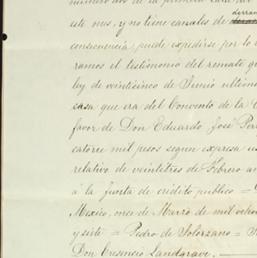 derram
este mes, y no tiene canales de
consecuencia puede expedirse por lo
ramos el testimonio del remate que
ley de veinticinco de Junio ultimo
casa que era del Convento de la
favor de Don Eduardo José Per
catorce mil pesos segun expresa
relativo de veintitres de Febrero an
á la junta de crédito público =
Mexico, once de Marzo de mil ocho
y siete = Pedro de Solorzano =
Don Cresencio Landgrave